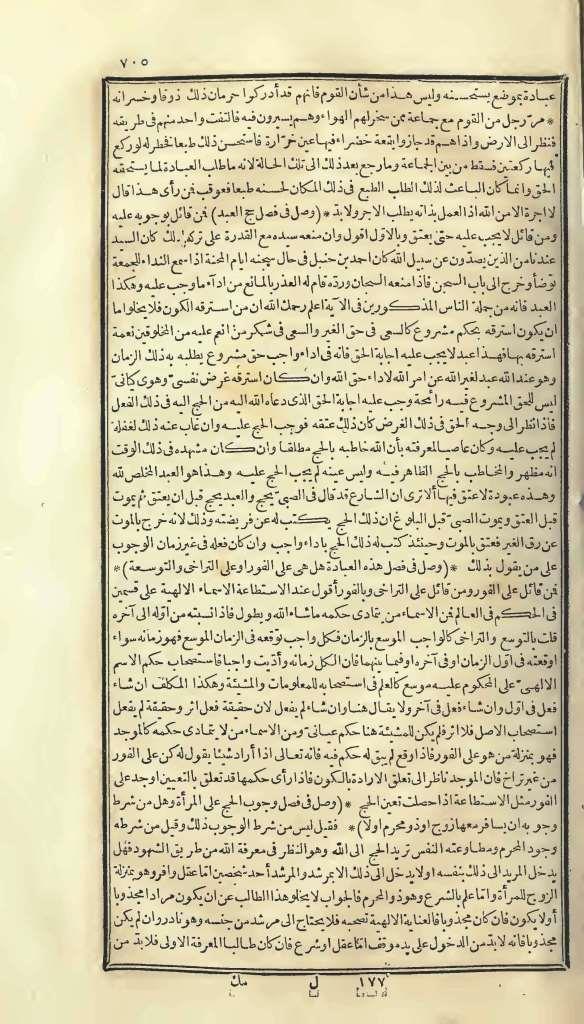 ٧٠٥
عبادة بموضع يستحسنه وليس هذا من شأن القوم فانهم قد أدركوا حرمان ذلك ذوقا وخسرانه
* مرّ رجل من القوم مع جماعة ممن سخر لهم الهواء وهم يسيرون فيه فالتفت واحد منهم فى طريقه
فنظر الى الارض واذا هم قد جازوا بقعة خضراء فيها عين خرّارة فاستحسن ذلك طبعا فخطر له لو ركع
فيها ركعتين فسقط من بين الجماعة وما رجع بعد ذلك الى تلك الحالة لانه ما طلب العبادة لما يستحقه
الحق وانما كان الباعث لذلك الطلب الطبع فى ذلك المكان لحسنه طبعا فعوقب فمن رأى هذا قال
لا اجرة الا من الله اذا العمل بذاته يطلب الاجر ولا بدّ * (وصل فى فصل حج العبد) فمن قائل بوجوبه عليه
ومن قائل لا يجب عليه حتى يعتق وبالاوّل اقول وان منعه سيده مع القدرة على تركه لذلك كان السيد
عندنا من الذين يصدّون عن سبيل الله كان احمد بن حنبل فى حال سجنه ايام المحنة اذا سمع النداء للجمعة
توضأ وخرج الى باب السجن فاذا منعه السجان وردّه قام له العذر بالمانع من اداء ما وجب عليه وهكذا
العبد فانه من جملة الناس المذكورين فى الآية اعلم رحمك الله ان من استرقه الكون فلا يخلو اما
ان يكون استرقه بحكم مشروع كالسعى فى حق الغير والسعى فى شكر من انعم عليه من المخلوقين نعمة
استرقه بها فهذا عبد لا يجب عليه اجابة الحق فانه فى اداء واجب حق مشروع يطلبه به ذلك الزمان
وهو عند الله عبد لغير الله عن امر الله لاداء حق الله وان كان استرقه غرض نفسىّ وهوى كيانىّ
ليس للحق المشروع فيه رائحة وجب عليه اجابة الحق الذى دعاه الله اليه من الحج اليه فى ذلك الفعل
فاذا نظر الى وجه الحق فى ذلك الغرض كان ذلك عتقه فوجب الحج عليه وان غاب عنه ذلك لغفلة
لم يجب عليه وكان عاصيا لمعرفته بأن الله خاطبه بالحج مطلقا وان كان مشهده فى ذلك الوقت
انه مظهر والمخاطب بالحج الظاهر فيه وليس عينه لم يجب الحج عليه وهذا هو العبد المخلص لله
وهذه عبودة لا عتق فيها ألا ترى ان الشارع قد قال فى الصبىّ يحج والعبد يحج قبل ان يعتق ثم يموت
قبل العتق ويموت الصبىّ قبل البلوغ ان ذلك الحج يكتب له عن فريضته وذلك لانه خرج بالموت
عن رق الغير فعتق بالموت وحينئذ كتب له ذلك الحج باداء واجب وان كان فعله فى غير زمان الوجوب
على من يقول بذلك * (وصل فى فصل هذه العبادة هل هى على الفور او على التراخى والتوسعة) *
فمن قائل على الفور ومن قائل على التراخى وبالفور أقول عند الاستطاعة الاسماء الالهية على قسمين
فى الحكم فى العالم فمن الاسماء من يتمادى حكمه ما شاء الله ويطول فاذا نسبته من اوّله الى آخره
قلت بالتوسع والتراخى كالواجب الموسع بالزمان فكل واجب توقعه فى الزمان الموسع فهو زمانه سواء
اوقعته فى اوّل الزمان او فى آخره او فيما بينهما فان الكل زمانه وأدّيت واجبا فاستصحاب حكم الاسم
الالهىّ على المحكوم عليه موسع كالعلم فى استصحابه للمعلومات والمشيئة وهكذا المكلف ان شاء
فعل فى اوّل وان شاء فعل فى آخر ولا يقال هنا وان شاء لم يفعل لان حقيقة فعل اثر وحقيقة لم يفعل
استصحاب الاصل فلا اثر فلم يكن للمشيئة هنا حكم عيانىّ ومن الاسماء من لا يتمادى حكمه كالموجد
فهو بمنزلة من هو على الفور فاذا وقع لم يبق له حكم فيه فانه تعالى اذا أراد شيئا يقول له كن على الفور
من غير تراخ فان الموجد ناظر الى تعلق الارادة بالكون فاذا رأى حكمها قد تعلق بالتعيين اوجد على
الفور مثل الاستطاعة اذا حصلت تعين الحج * (وصل فى فصل وجوب الحج على المرأة وهل من شرط
وجوبه ان يسافر معها زوج او ذو محرم اولا) * فقيل ليس من شرط الوجوب ذلك وقيل من شرطه
وجود المحرم ومطاوعته النفس تريد الحج الى الله وهو النظر فى معرفة الله من طريق الشهود فهل
يدخل المريد الى ذلك بنفسه او لا يدخل الى ذلك الا بمرشد والمرشد أحد شخصين اما عقل وافر وهو بمنزلة
الزوج للمرأة واما علم بالشرع وهو ذو المحرم فالجواب لا يخلو هذا الطالب عن ان يكون مرادا مجذوبا
أو لا يكون فان كان مجذوبا فالعناية الالهية تصحبه فلا يحتاج الى مرشد من جنسه وهو نادر وان لم يكن
مجذوبا فانه لا بدّ من الدخول على يد موقف اما عقل او شرع فان كان طالب المعرفة الاولى فلا بدّ من
١٧٧ ل مك